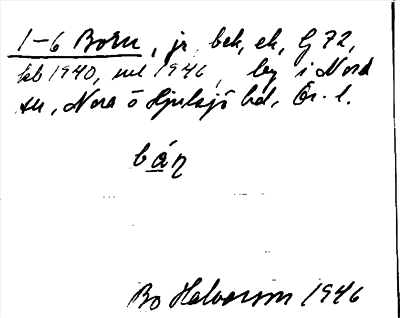 1-6 Born, jr, bek, ek, G 72,
lab 1940, ml 1946, by i Nora
sn, Nora o Hjulsjö hd, Ör. l.
bán
Bo Halvarson 1946